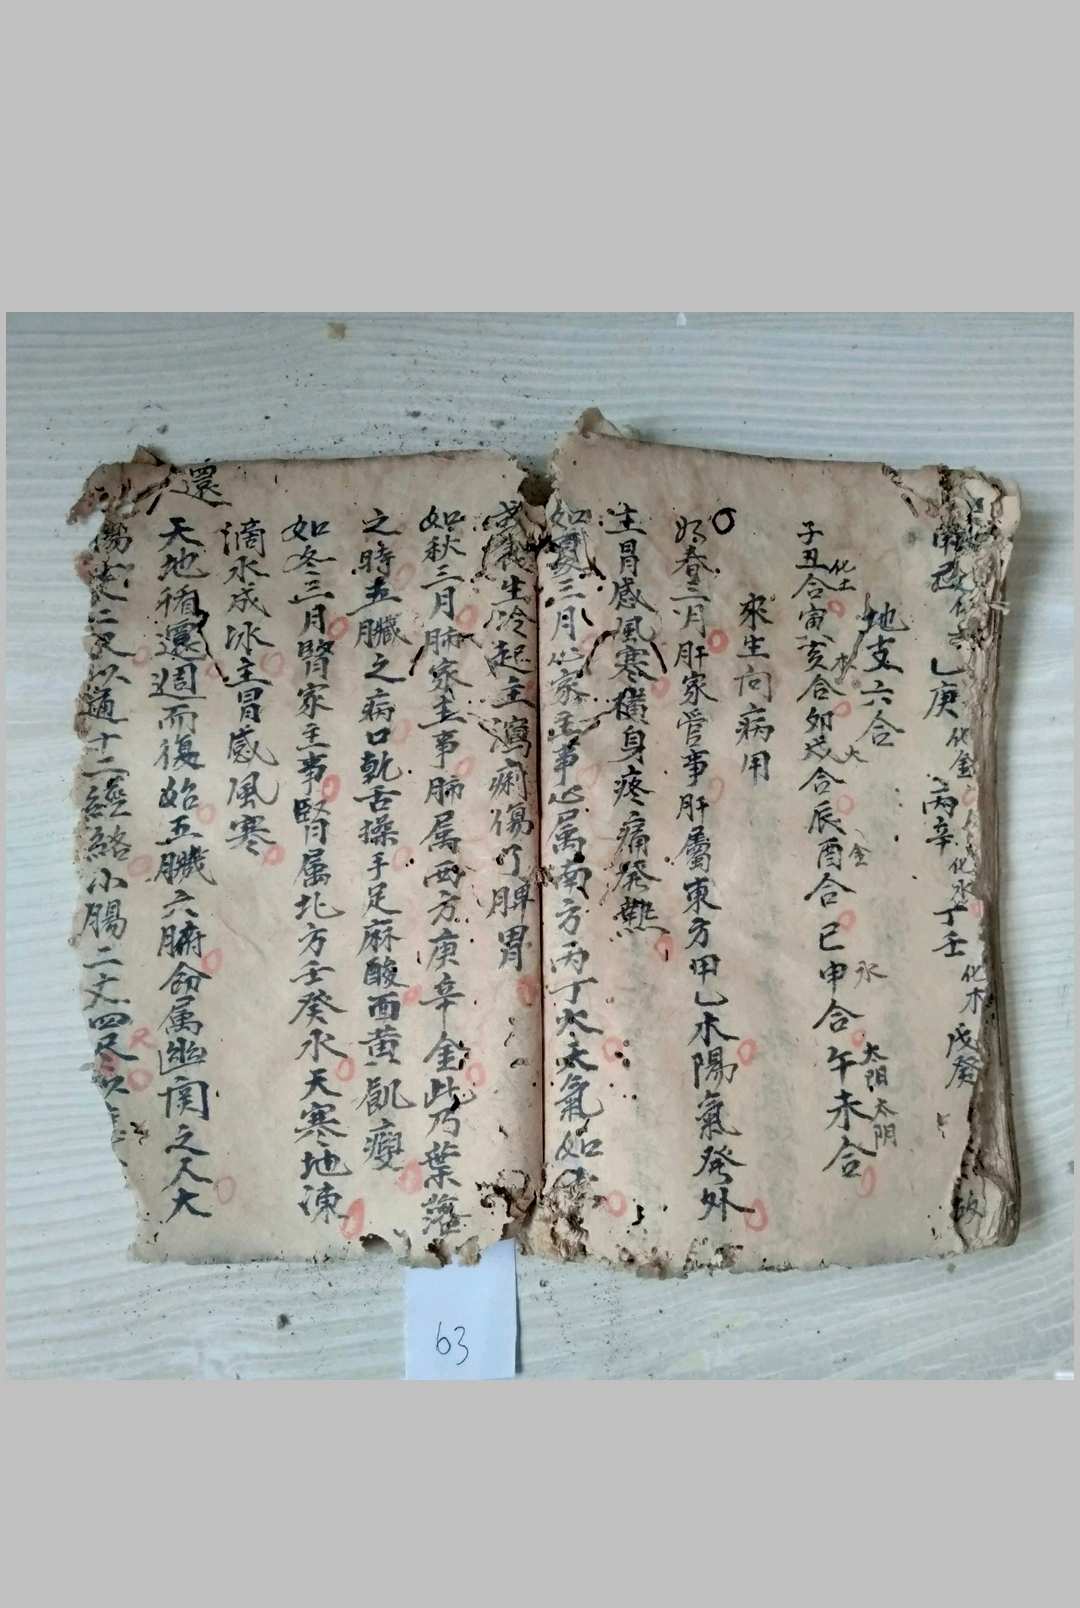 乙庚化金丙辛化水丁壬化木戊癸
地支六合
子丑合化土寅亥合木卯戌合火辰酉合金巳申合水午未合太阳太阴
來生问病用
如春三月肝家管事肝屬東方甲乙木陽氣癸外
生冒感風寒積身疼痛癸熱
如夏三月心家主事心属南方丙丁火天氣如
生冷起主瀉痢傷了脾胃
如秋三月肺家主事肺属西方庚辛金此乃葉落
之時五臟之病口乹舌操手足麻酸面黄飢瘦
如冬三月腎家主事腎属北方壬癸水天寒地凍
滴水成冰主冒感風寒
還
天地循還週而復始五臟六腑命属幽関之人大
腸二尺以通十二經絡小腸二丈四尺
63